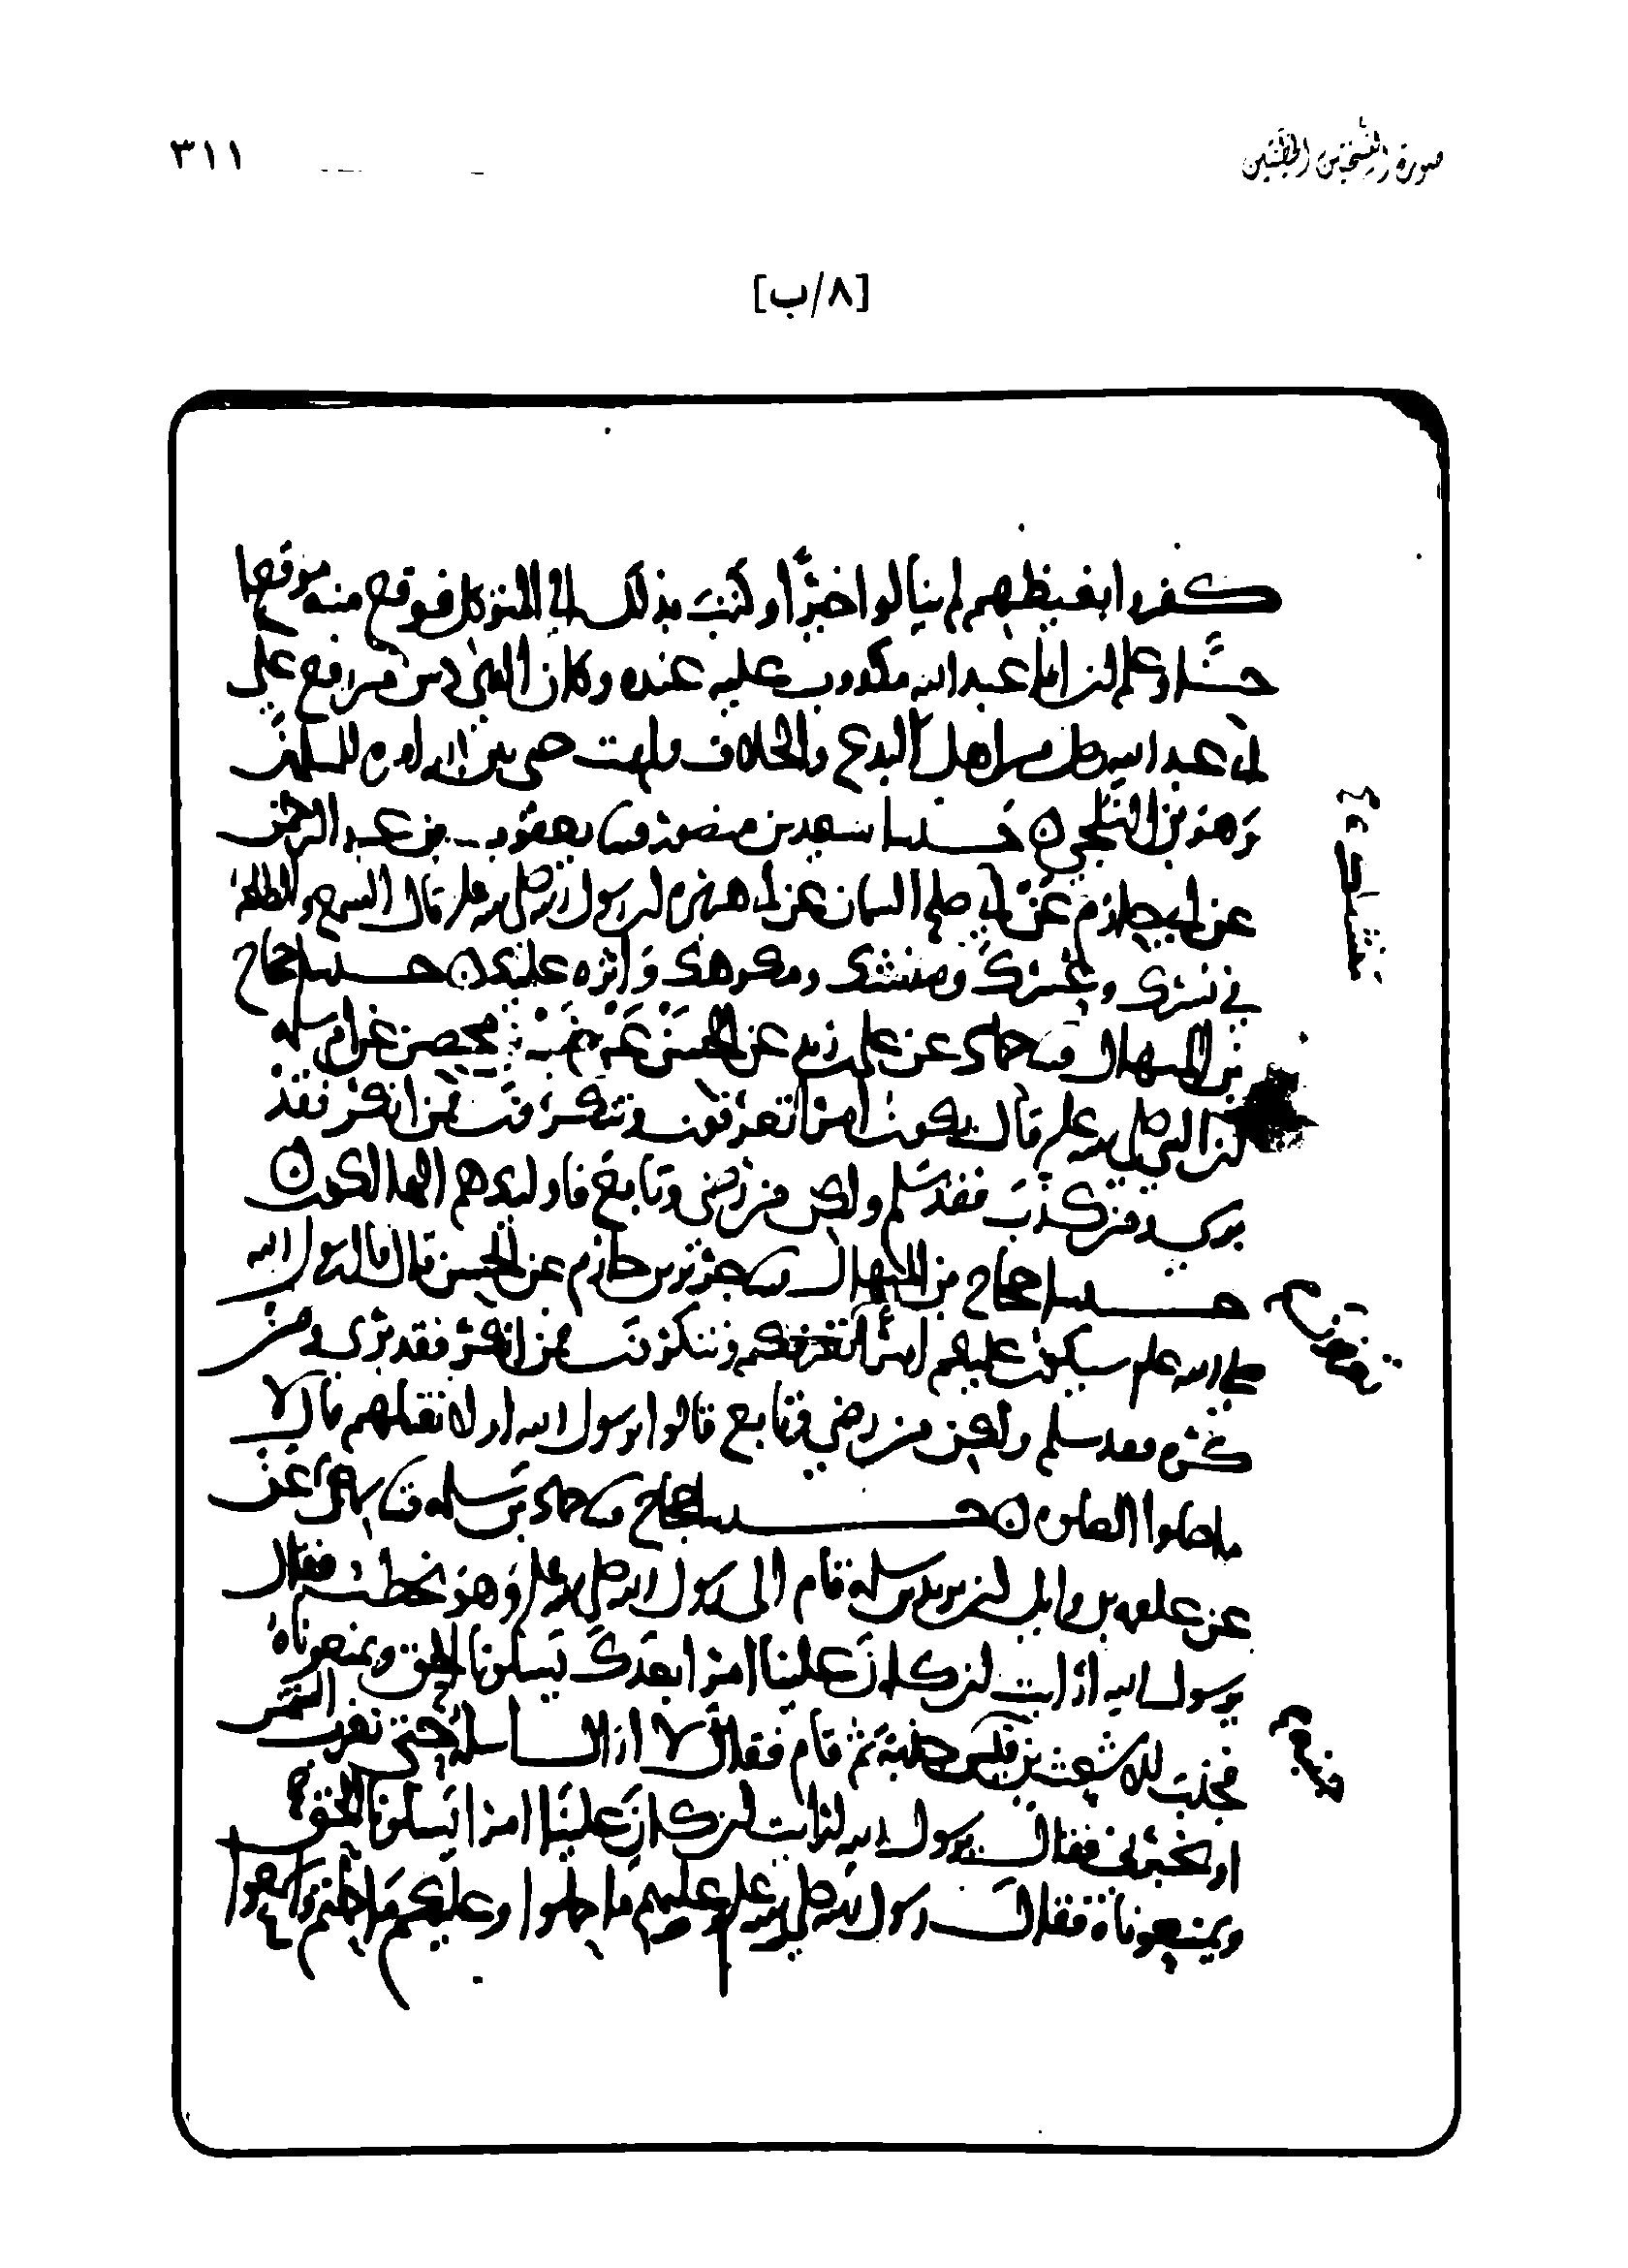 صورة النسختين الخطيتين
٣١١
[٨/ب]
كفروا بغيظهم لم ينالوا خيرا وكتب بذلك الى المتوكل فوقع منه موقعا
حسنا وعلم ان ابا عبد الله مكذوب عليه عنده وكان الذي دس من رفع على
ابي عبد الله رجل من اهل البدع والخلاف
بن الثلجي ٥ حدثنا سعيد بن منصور قثنا يعقوب بن عبد الرحمن
عن ابي حازم عن ابي صلح السمان عن ابي هريره ان رسول الله صلى الله عليه وسلم قال السمع والطاعة
في يسرك وعسرك ومنشطك ومكرهك واثره عليك ٥ حدثنا حجاج
بن المنهال قثنا حماد عن علي بن زيد عن الحسن عن ضبه بن محصن عن ام سلمه
ان النبي صلى الله عليه وسلم قال يكون امرا تعرفون وتنكرون فمن انكر فقد
برى ومن كذب فقد سلم ولكن من رضي وتابع فاوليك هم الهالكون ٥
حدثنا حجاج بن المنهال قثنا جرير بن حازم عن الحسن قال قال رسول الله
صلى الله عليه وسلم سيكون عليكم امرا وتنكرون فمن انكر فقد برى ومن
كره فقد سلم ولكن من رضي وتابع قالوا يرسول الله اولا نقتلهم قال لا
ما صلوا الصلوه ٥ حدثنا حجاج قثنا حماد بن سلمه قثنا سماك عن
عن علقمه بن وايل ان يزيد بن سلمه قام الى رسول الله صلى الله عليه وسلم وهو يخطب فقال
يرسول الله ارايت ان كان علينا امرا بعدك يسلونا الحق ويمنعوناه
فجذب الاشعث بن قيس جانبه ثم قام فقال لا ازال اسله حتى تغرب الشمس
او يخبرني فقال يرسول الله ارايت ان كان علينا امرا يسلونا الحق
ويمنعوناه فقال رسول الله صلى الله عليه وسلم عليهم ما حملوا وعليكم ما حملتم واسمعوا